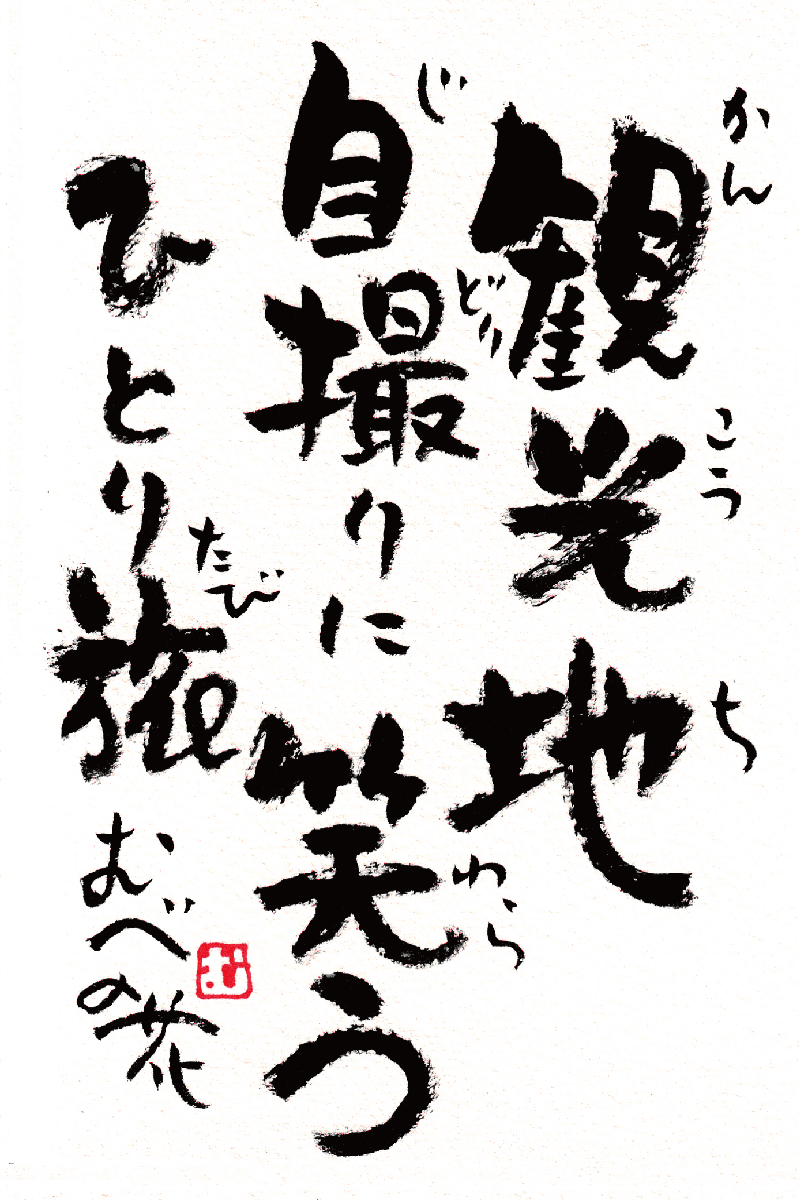 観光地
かんこうち
自撮りに笑う
じどりわら
ひとり旅
たび
むべの花
む